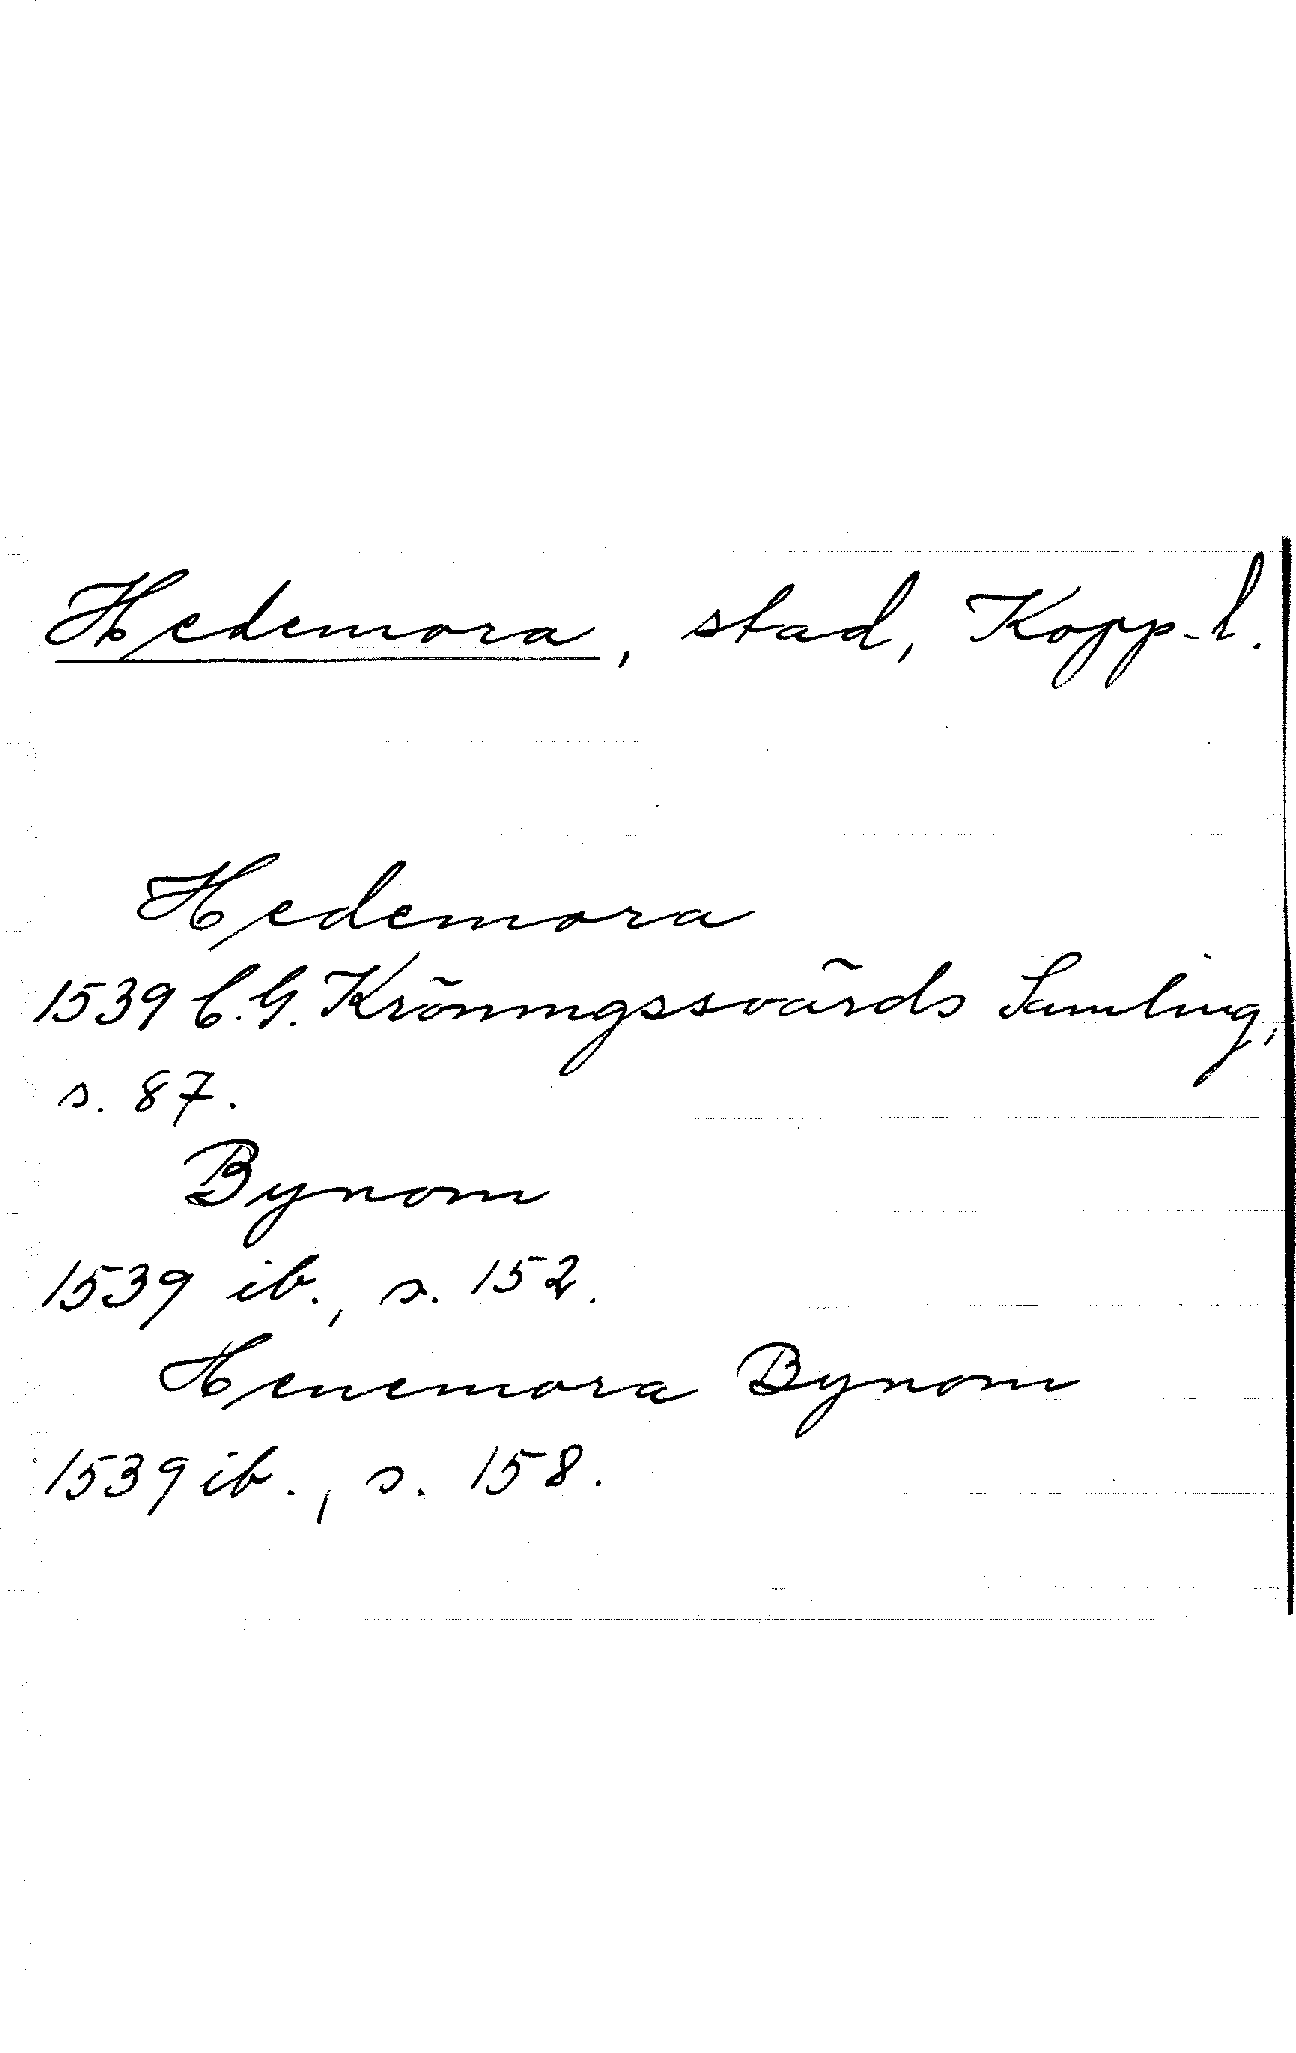 Hedemora, stad, Kopp-l.
Hedemora
1539 C.G. Kröningssvärds Samling,
s. 87.
Bynom
1539 ib., s. 152.
Henemora Bynom
1539 ib., s. 158.